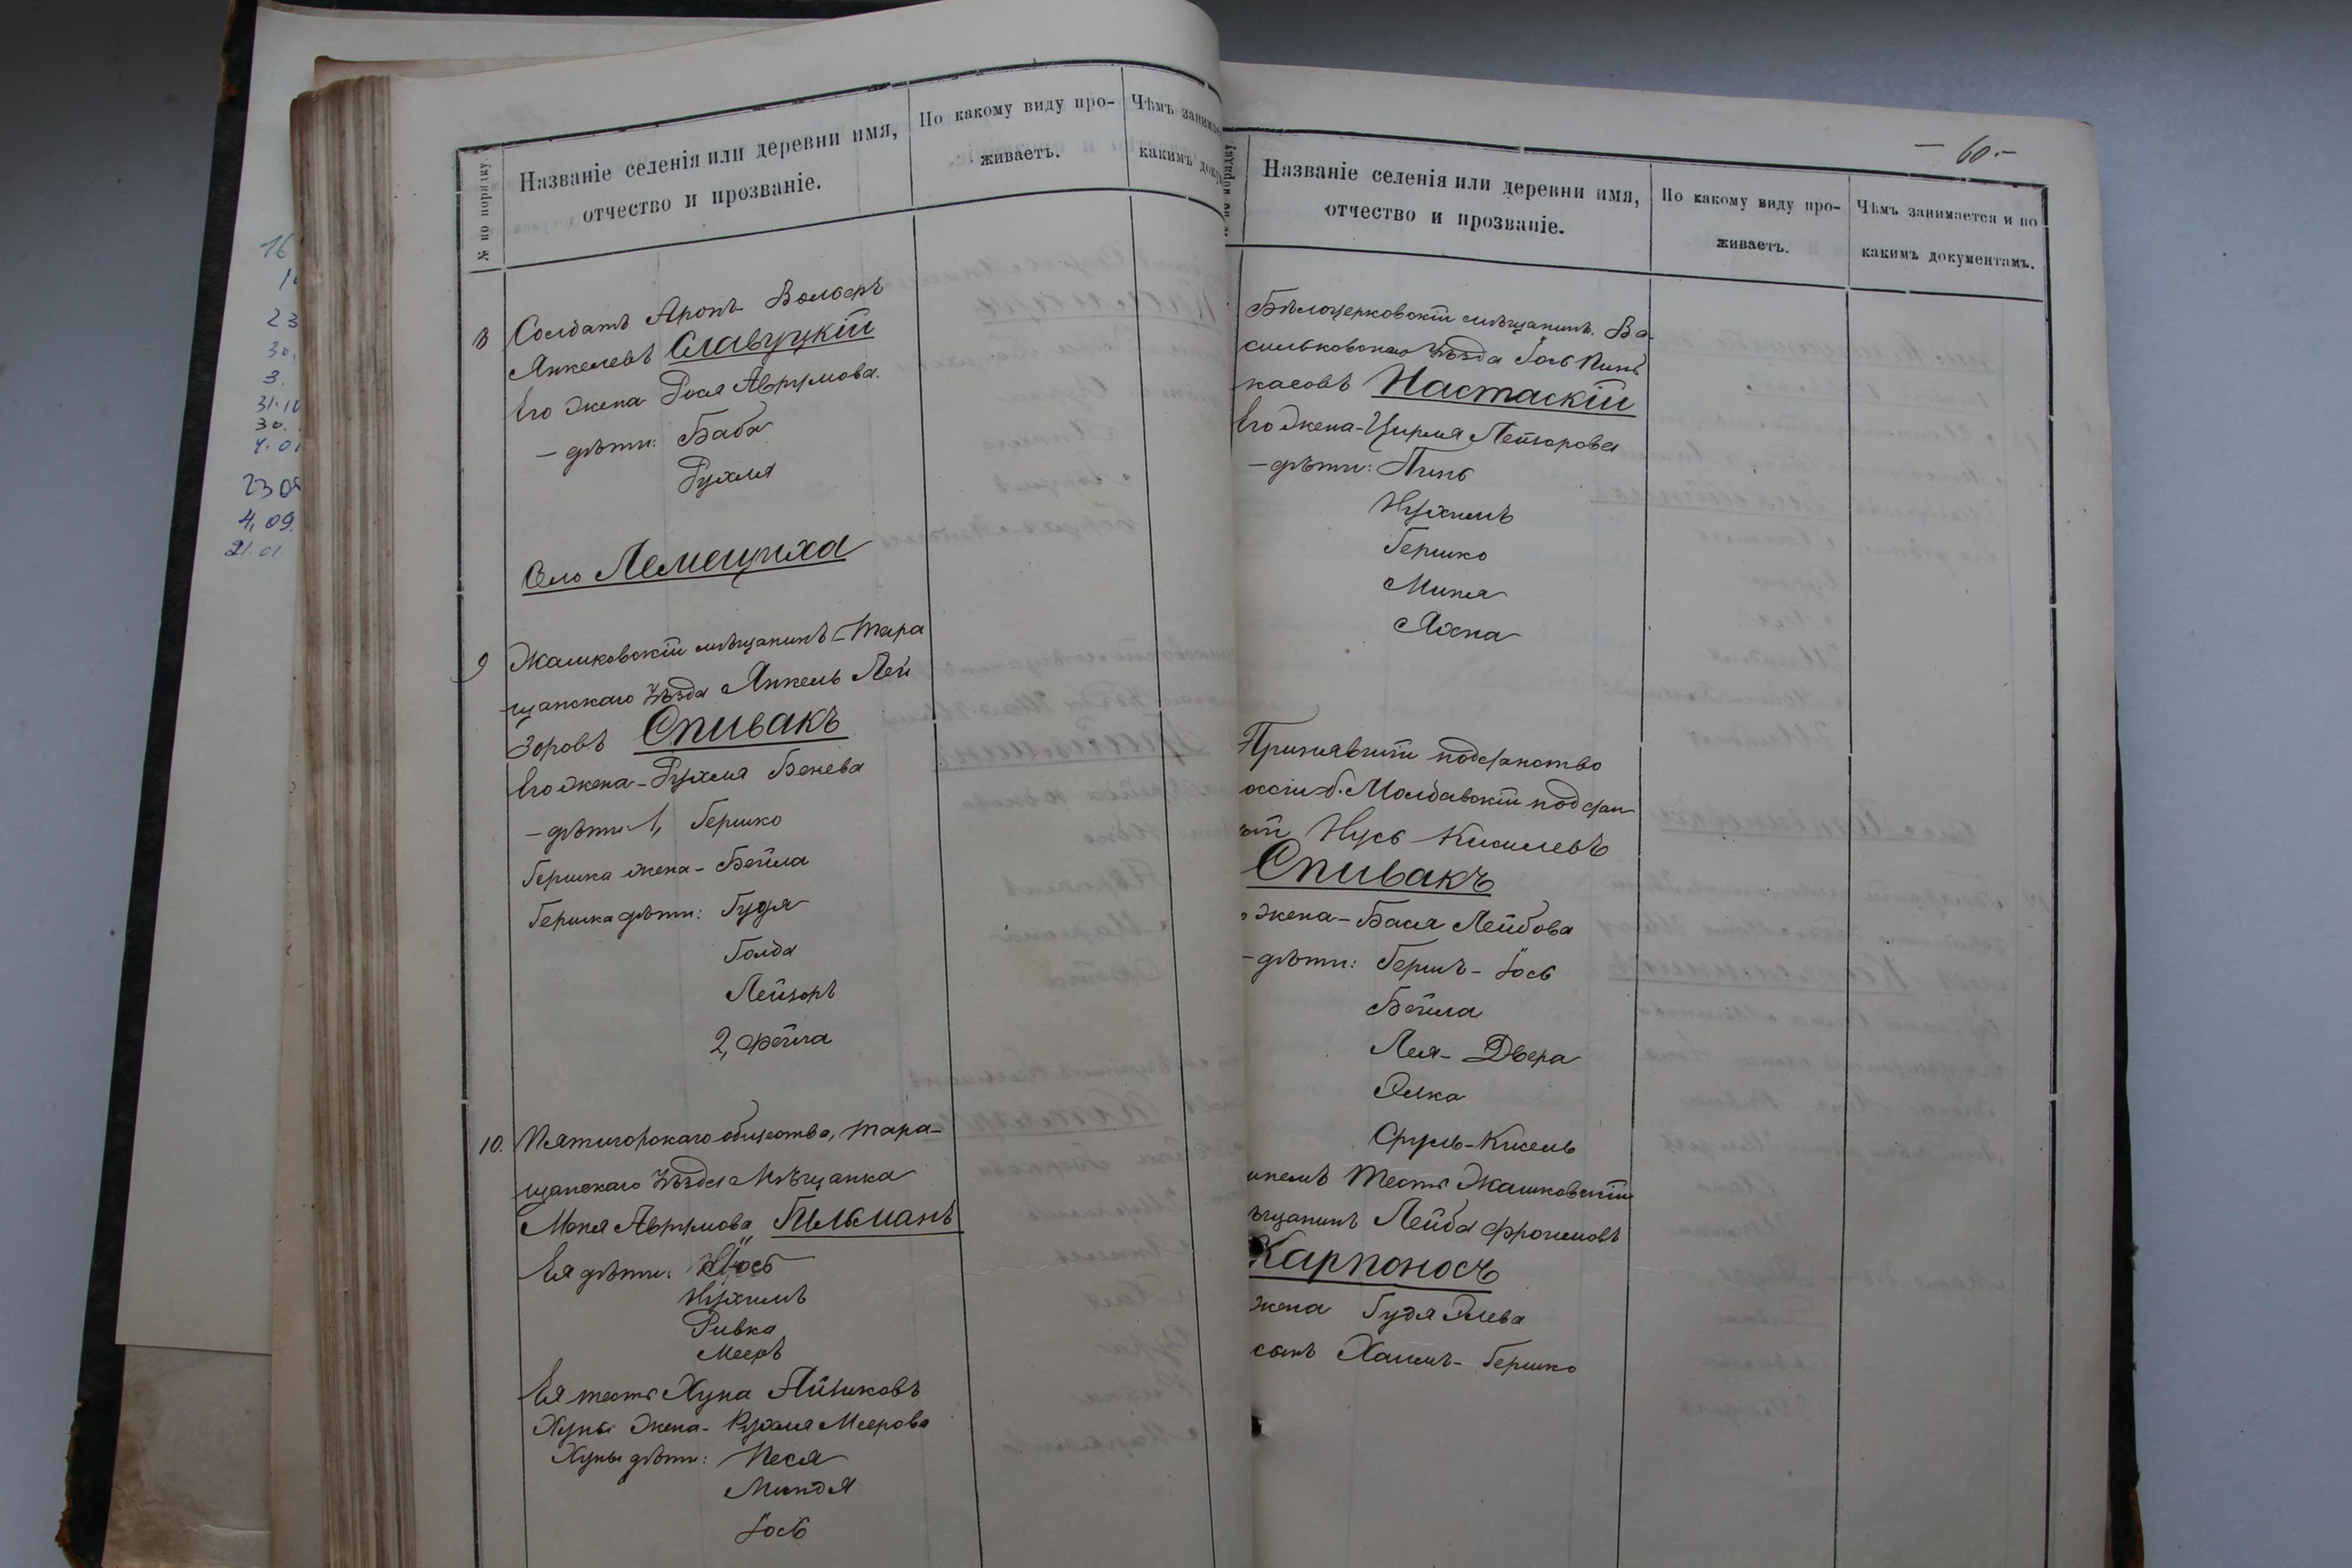 16
23
30.
3.
31.10
30.
4.01
23.09
4.09.
21.01
№ по порядку.
Названіе селенія или деревни имя,
отчество и прозваніе.
По какому виду про-
живаетъ.
Чѣмъ занимае
какимъ доку
8 Солдатъ Аронъ Вольфъ
Янкелевъ Славуцкій
Его жена Рося Аврумова.
— дѣти: Баба
Рухля
Село Лемещиха
9 Жашковскій мѣщанинъ Тара
щанскаго Уѣзда Янкель Лей
зоровъ Спивакъ
Его жена - Рухля Бенева
— дѣти 1, Гершко
Гершка жена - Бейла
Гершка дѣти: Гудя
Голда
Лейзоръ
2, Фейга
10. Пятигорскаго общества, Тара-
щанскаго Уѣзда Мѣщанка
Маня Аврумова Гильманъ
Ея дѣти: Іось
Нухимъ
Ривка
Мееръ
Ея тесть Хуна Айзиковъ
Хуны жена - Рухля Меерова
Хуны дѣти: Песя
Миндя
Іось
— 60 —
Названіе селенія или деревни имя,
отчество и прозваніе.
По какому виду про-
живаетъ.
Чѣмъ занимается и по
какимъ документамъ.
Бѣлоцерковскій мѣщанинъ. Ва-
сильковскаго Уѣзда Іось Пинь
касовъ Настаскій
Его жена - Цирля Лейзорова
— дѣти: Пинь
Нухимъ
Гершко
Миня
Яхна
Принявшій подданство
оссіи б. Молдавскій поддан
ый Нусь Кисилевъ
Спивакъ
жена - Бася Лейбова
— дѣти: Гершъ - Іось
Бейла
Лея - Двера
Элка
Сруль - Кисель
Тесть Жашковскій
ѣщанинъ Лейба Фроимовъ
Карпоносъ
жена Гудя Элева
сынъ Хаимъ - Гершко